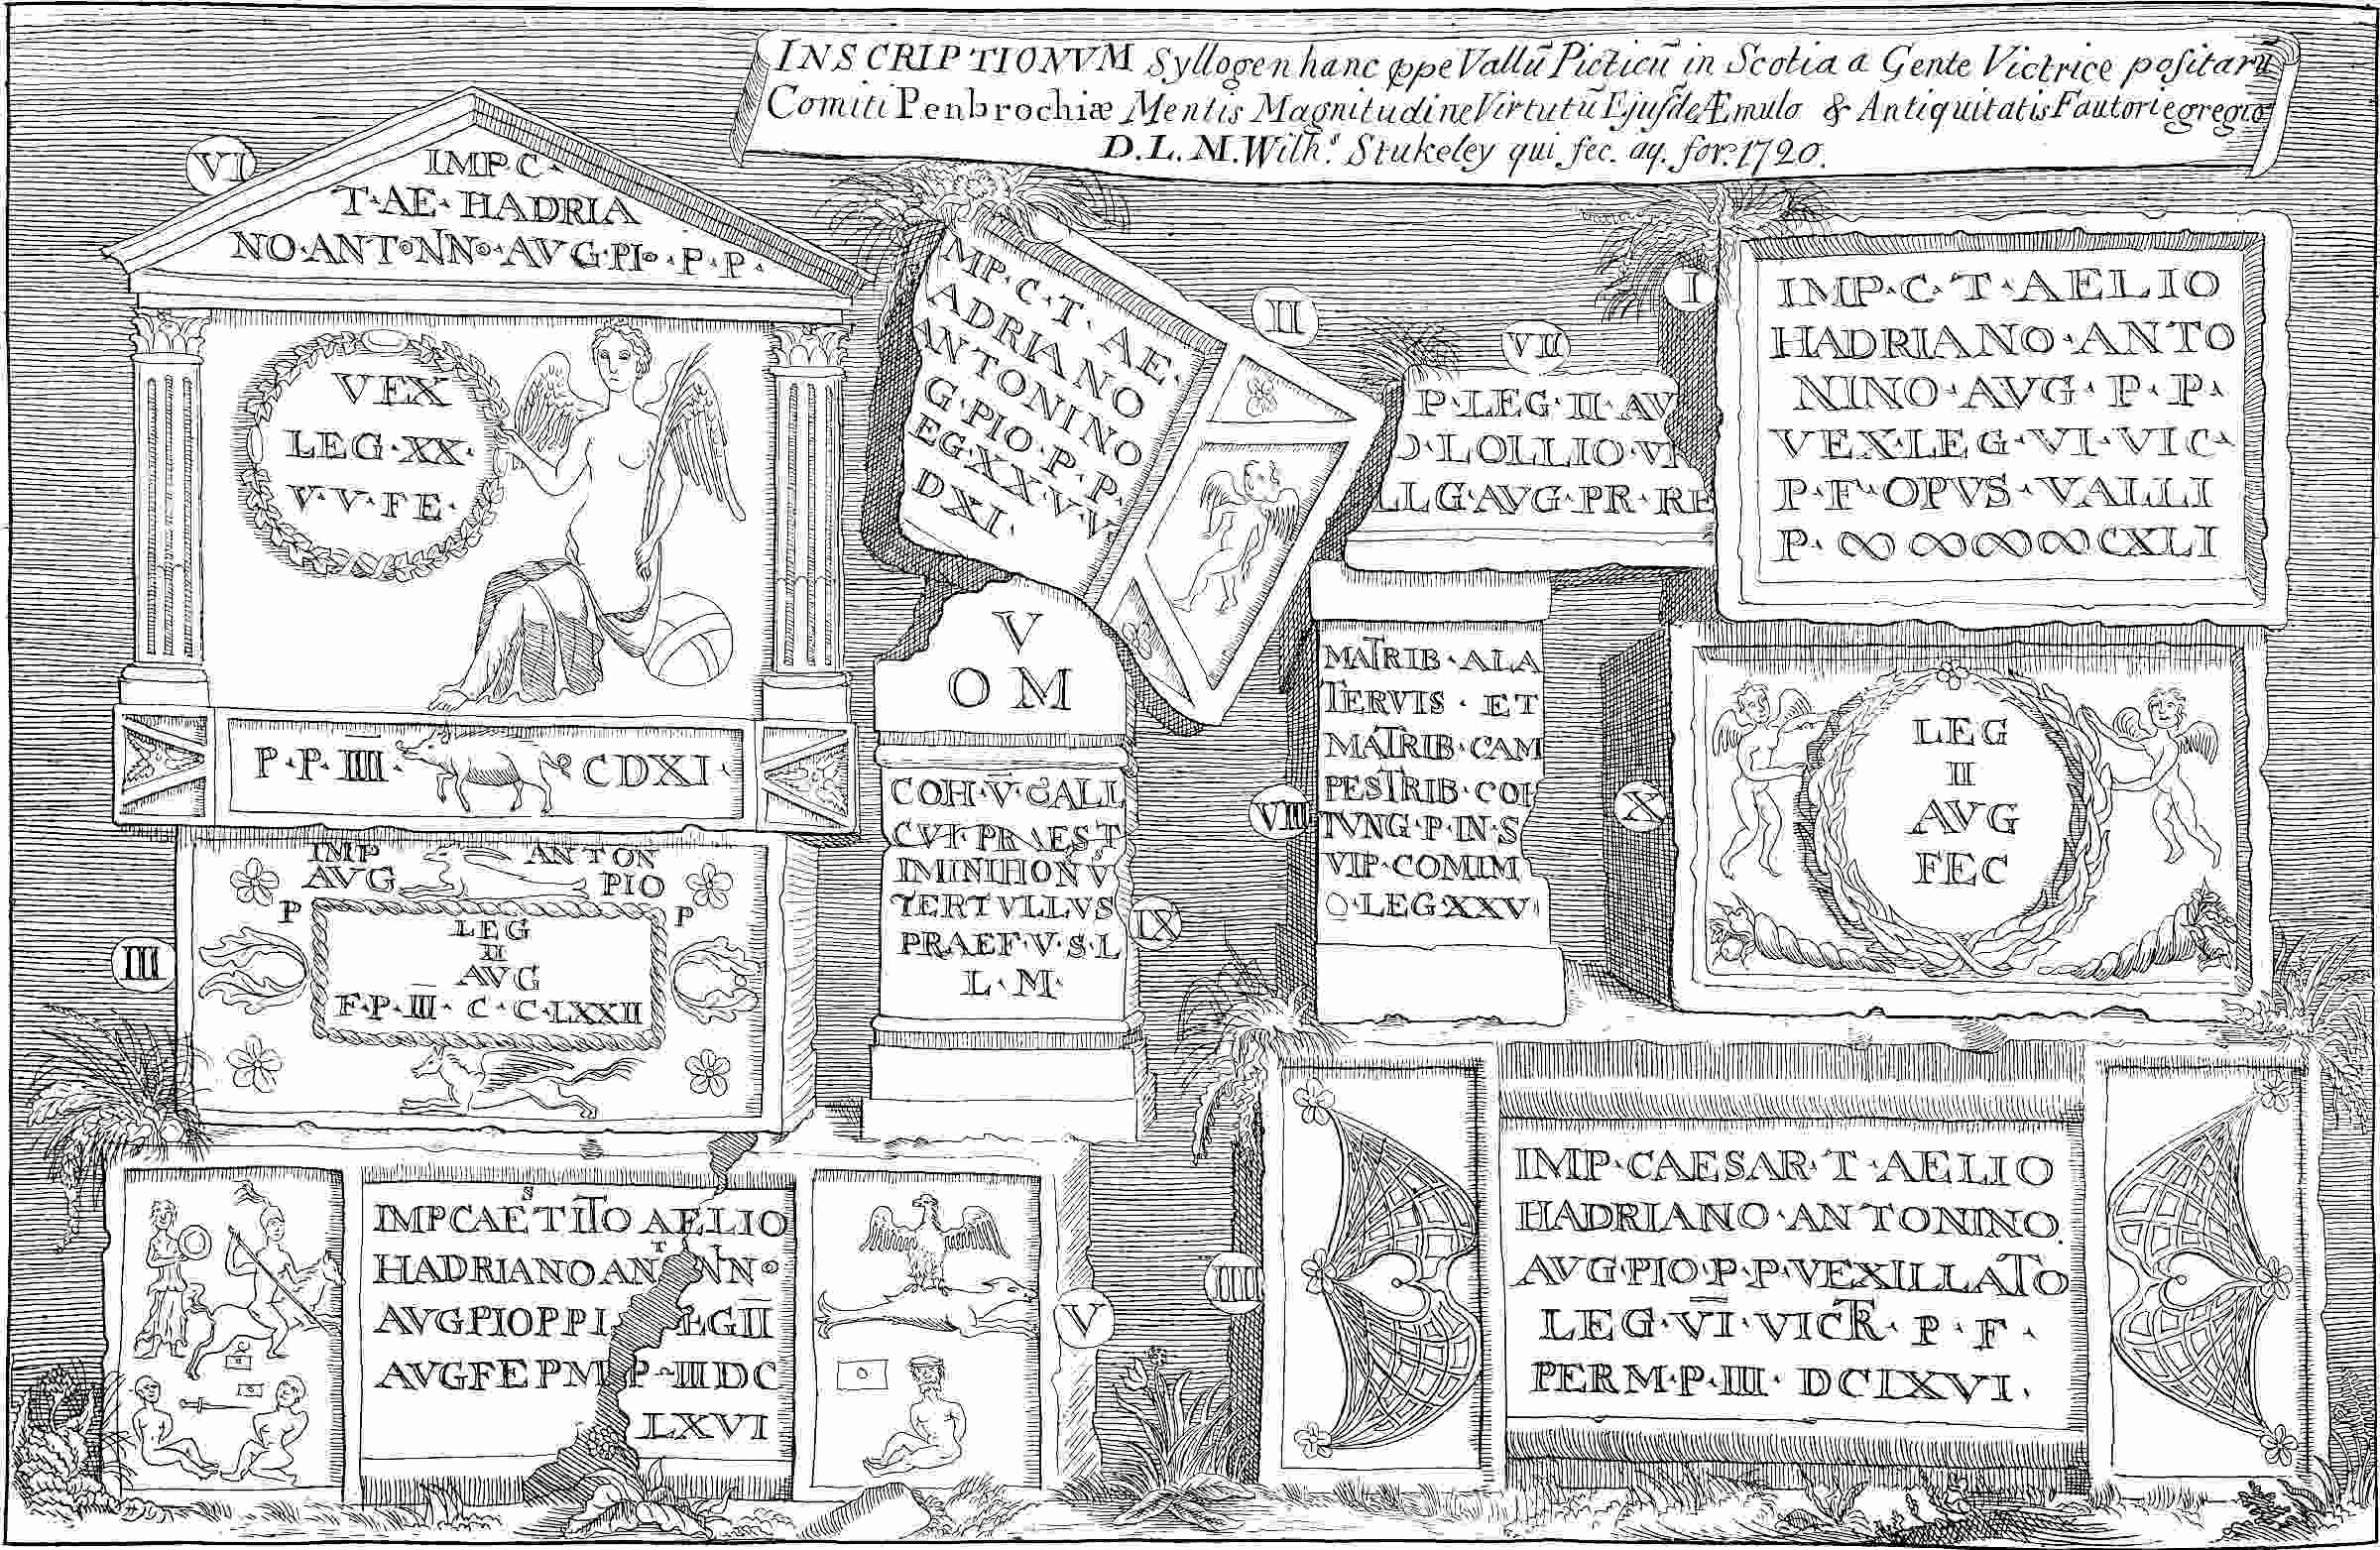 INSCRIPTIONVM Syllogen hanc ꝓpe Vallū Picticū in Scotia a Gente Victrice positarū
Comiti Penbrochiæ Mentis Magnitudine Virtutū Ejusdē Æmulo & Antiquitatis Fautori egregio
D.L.M. Wilhs. Stukeley qui fec. aq. for. 1720.
VI
IMP·C·
T·AE·HADRIA
NO·ANTONNO·AVG·PIO·P·P·
VEX
LEG·XX·
V·V·FE·
P·P·III· CDXI·
II
IMP·C·T·AE·
ADRIANO
ANTONINO
G·PIO·P·P·
EG·XX·V·V
DXI·
VII
P·LEG·II·AV
LOLLIO·VR
LLG·AVG·PR·RE
I
IMP·C·T·AELIO
HADRIANO·ANTO
NINO·AVG·P·P·
VEX·LEG·VI·VIC·
P·F·OPVS·VALLI
P·∞∞∞∞CXLI
III
IMP ANTON
AVG PIO
P P
LEG
II
AVG
F·P·III·C·C·LXXII
IX
V
O M
COH·V·GALL
CVI·PRAEST
IMINIHONVS
TERTVLLVS
PRAEF·V·S·L
L·M·
VIII
MATRIB·ALA
TERVIS·ET
MATRIB·CAM
PESTRIB·COI
IVNG·P·IN·S
VIP·COMIM
O·LEG·XXV
X
LEG
II
AVG
FEC
V
IMPCAEST TITO AELIO
HADRIANO ANTNNO
AVGPIOPPI EGII
AVGFEPM P III DC
LXVI
IIII
IMP·CAESAR·T·AELIO
HADRIANO·ANTONINO
AVG·PIO·P·P·VEXILLATO
LEG·VI·VICTR·P·F·
PER M·P·III·DCIXVI·